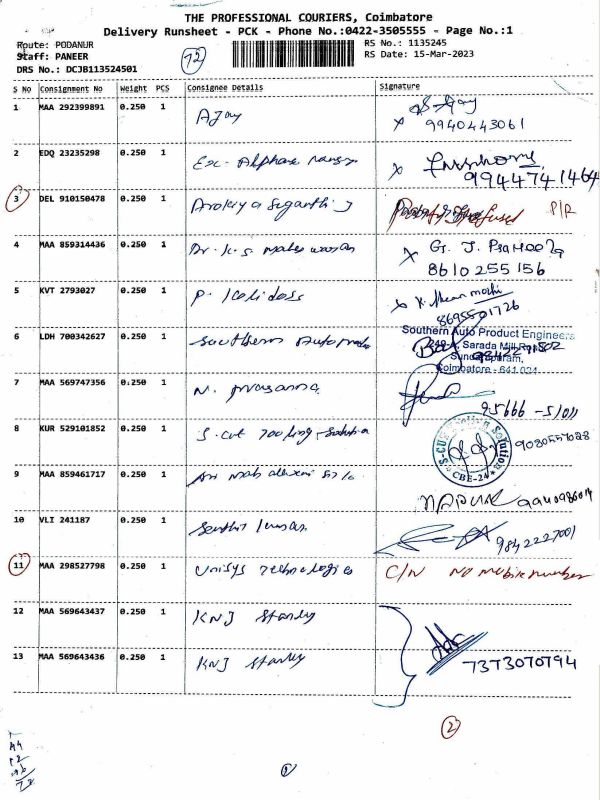 THE PROFESSIONAL COURIERS, Coimbatore
Delivery Runsheet - PCK - Phone No.:0422-3505555 - Page No.:1
Route: PODANUR
RS No.: 1135245
Staff: PANEER
72
RS Date: 15-Mar-2023
DRS No.: DCJB113524501
S No Consignment No Weight PCS Consignee Details Signature
1 MAA 292399891 0.250 1 Ajay
x 9940443061
2 EDQ 23235298 0.250 1
x 9944741464
3 DEL 910150478 0.250 1 Arokiya Suganthi J refused P/R
4 MAA 859314436 0.250 1 Dr. K. S. x G. J.
8610255156
5 KVT 2793027 0.250 1 P. Kalidoss x K.
8695501726
6 LDH 700342627 0.250 1 Southern Auto
Southern Auto Product Engineers
Sarada Mill Road
Sundarapuram,
Coimbatore - 641 024
7 MAA 569747356 0.250 1 N. Prasanna
95666-51011
8 KUR 529101852 0.250 1 S-cut Tooling Solution
S-CUT Tooling Solution
CBE-24
9 MAA 859461717 0.250 1
10 VLI 241187 0.250 1 Senthil Kumar
9842227001
11 MAA 298527798 0.250 1 Unisys Technologies C/N No mobile number
12 MAA 569643437 0.250 1 KNJ Stanly
13 MAA 569643436 0.250 1 KNJ Stanly
7373070794
2